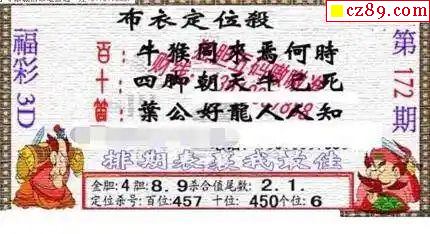 cz89.com
布衣定位殺
福彩3D
第172期
百：牛猴同來焉何時
十：四脚朝天牛已死
箇：葉公好龍人人知
金胆:4胆:8.9杀合值尾数:2.1.
定位杀号:百位:457 十位:450个位:6